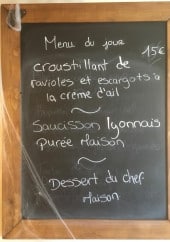 Menu du jour
15€
croustillant de
ravioles et escargots à
la crème d'ail
Saucisson lyonnais
Purée Maison
Dessert du chef
Maison